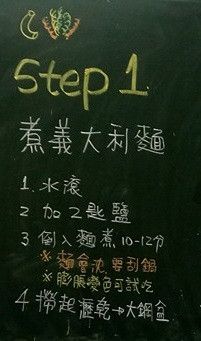 Step 1.
煮義大利麵
1. 水滾
2 加2匙鹽
3 倒入麵煮10-12分
※ 麵會沈 要刮鍋
※ 膨脹變色可試吃
4 撈起瀝乾→大鋼盆